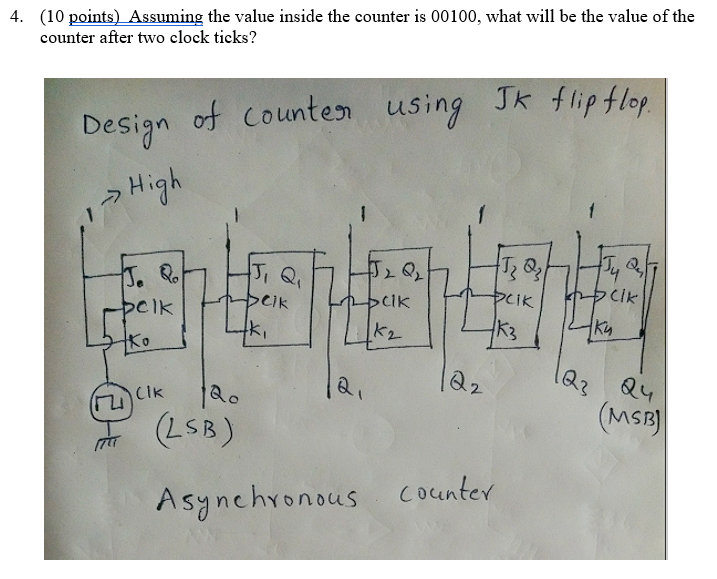 4. (10 points) Assuming the value inside the counter is 00100, what will be the value of the
counter after two clock ticks?
Design of counter using JK flip flop.
→ High
1 1 1 1 1
J0 Q0 J1 Q1 J2 Q2 J3 Q3 J4 Q4
clk clk clk clk clk
K0 K1 K2 K3 K4
clk Q0 Q1 Q2 Q3 Q4
(LSB) (MSB)
Asynchronous counter